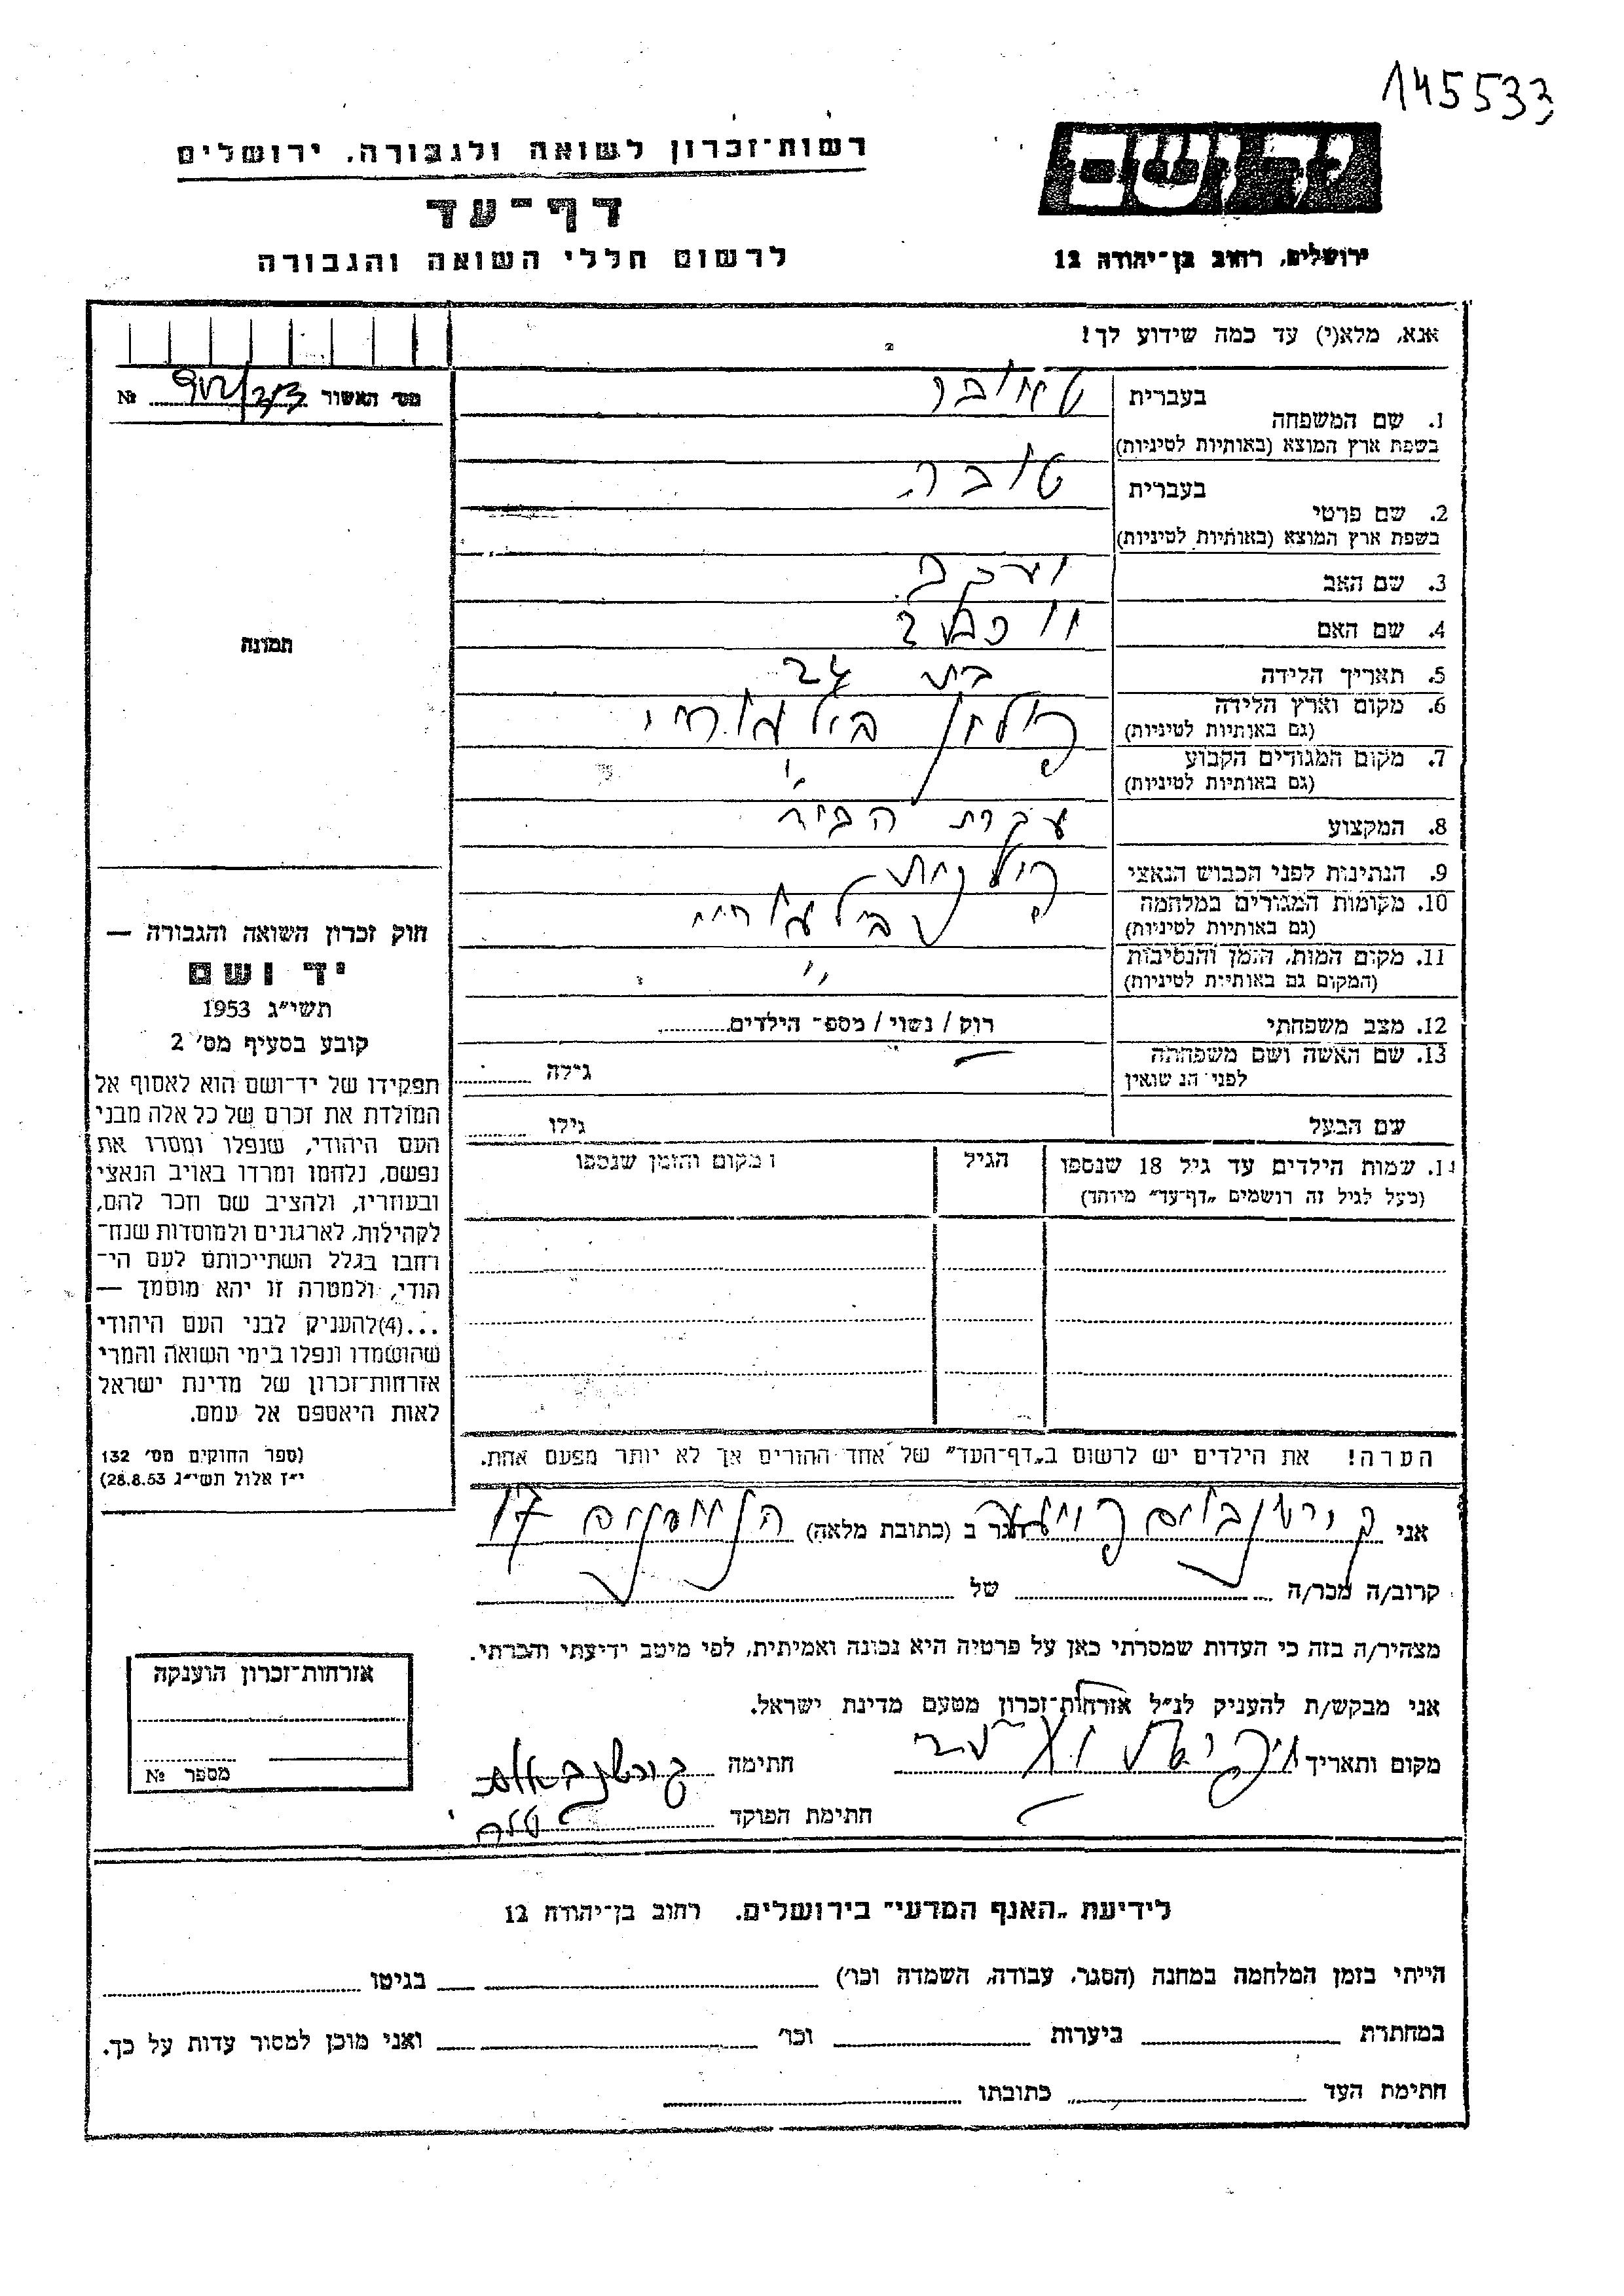 145533
רשות־זכרון לשואה ולגבורה, ירושלים
יד ושם
דף־עד
לרשום חללי השואה והגבורה
ירושלים, רחוב בן־יהודה 12
אנא, מלא(י) עד כמה שידוע לך!
מס׳ האשור № 902/213
1. שם המשפחה
בעברית טאובר
בשפת ארץ המוצא (באותיות לטיניות)
2. שם פרטי
בעברית טובה
בשפת ארץ המוצא (באותיות לטיניות)
3. שם האב יעקב
4. שם האם
תמונה
5. תאריך הלידה בת 24
6. מקום וארץ הלידה פולין בילגורי
(גם באותיות לטיניות)
7. מקום המגורים הקבוע "
(גם באותיות לטיניות)
8. המקצוע עקרת הבית
9. הנתינות לפני הכבוש הנאצי פולנית
10. מקומות המגורים במלחמה בילגוריי
(גם באותיות לטיניות)
11. מקום המות, הזמן והנסיבות "
(המקום גם באותיות לטיניות)
12. מצב משפחתי רוק / נשוי / מספ־ הילדים
13. שם האשה ושם משפחתה גילה
לפני הנשואין
שם הבעל גילו
חוק זכרון השואה והגבורה —
יד ושם
תשי״ג 1953
קובע בסעיף מס׳ 2
תפקידו של יד־ושם הוא לאסוף אל
המולדת את זכרם של כל אלה מבני
העם היהודי, שנפלו ומסרו את
נפשם, נלחמו ומרדו באויב הנאצי
ובעוזריו, ולהציב שם וזכר להם,
לקהילות, לארגונים ולמוסדות שנח־
רחבו בגלל השתייכותם לעם הי־
הודי, ולמטרה זו יהא מוסמך —
...(4)להעניק לבני העם היהודי
שהושמדו ונפלו בימי השואה והמרי
אזרחות־זכרון של מדינת ישראל
לאות היאספם אל עמם.
(ספר החוקים מס׳ 132
י״ז אלול תשי״ג 28.8.53)
1. שמות הילדים עד גיל 18 שנספו הגיל ו מקום והזמן שנספו
(מעל לגיל זה רושמים „דף־עד״ מיוחד)
הערה! את הילדים יש לרשום ב„דף־העד״ של אחד ההורים אך לא יותר מפעם אחת.
אני הגר ב (כתובת מלאה) 17
קרוב/ה מכר/ה של
מצהיר/ה בזה כי העדות שמסרתי כאן על פרטיה היא נכונה ואמיתית, לפי מיטב ידיעתי והכרתי.
אני מבקש/ת להעניק לנ״ל אזרחות־זכרון מטעם מדינת ישראל.
מקום ותאריך חתימה
חתימת הפוקד
אזרחות־זכרון הוענקה
מספר №
לידיעת „האגף המדעי״ בירושלים. רחוב בן־יהודה 12
הייתי בזמן המלחמה במחנה (הסגר, עבודה, השמדה וכו׳) בגיטו
במחתרת ביערות וכו׳ ואני מוכן למסור עדות על כך.
חתימת העד כתובתו